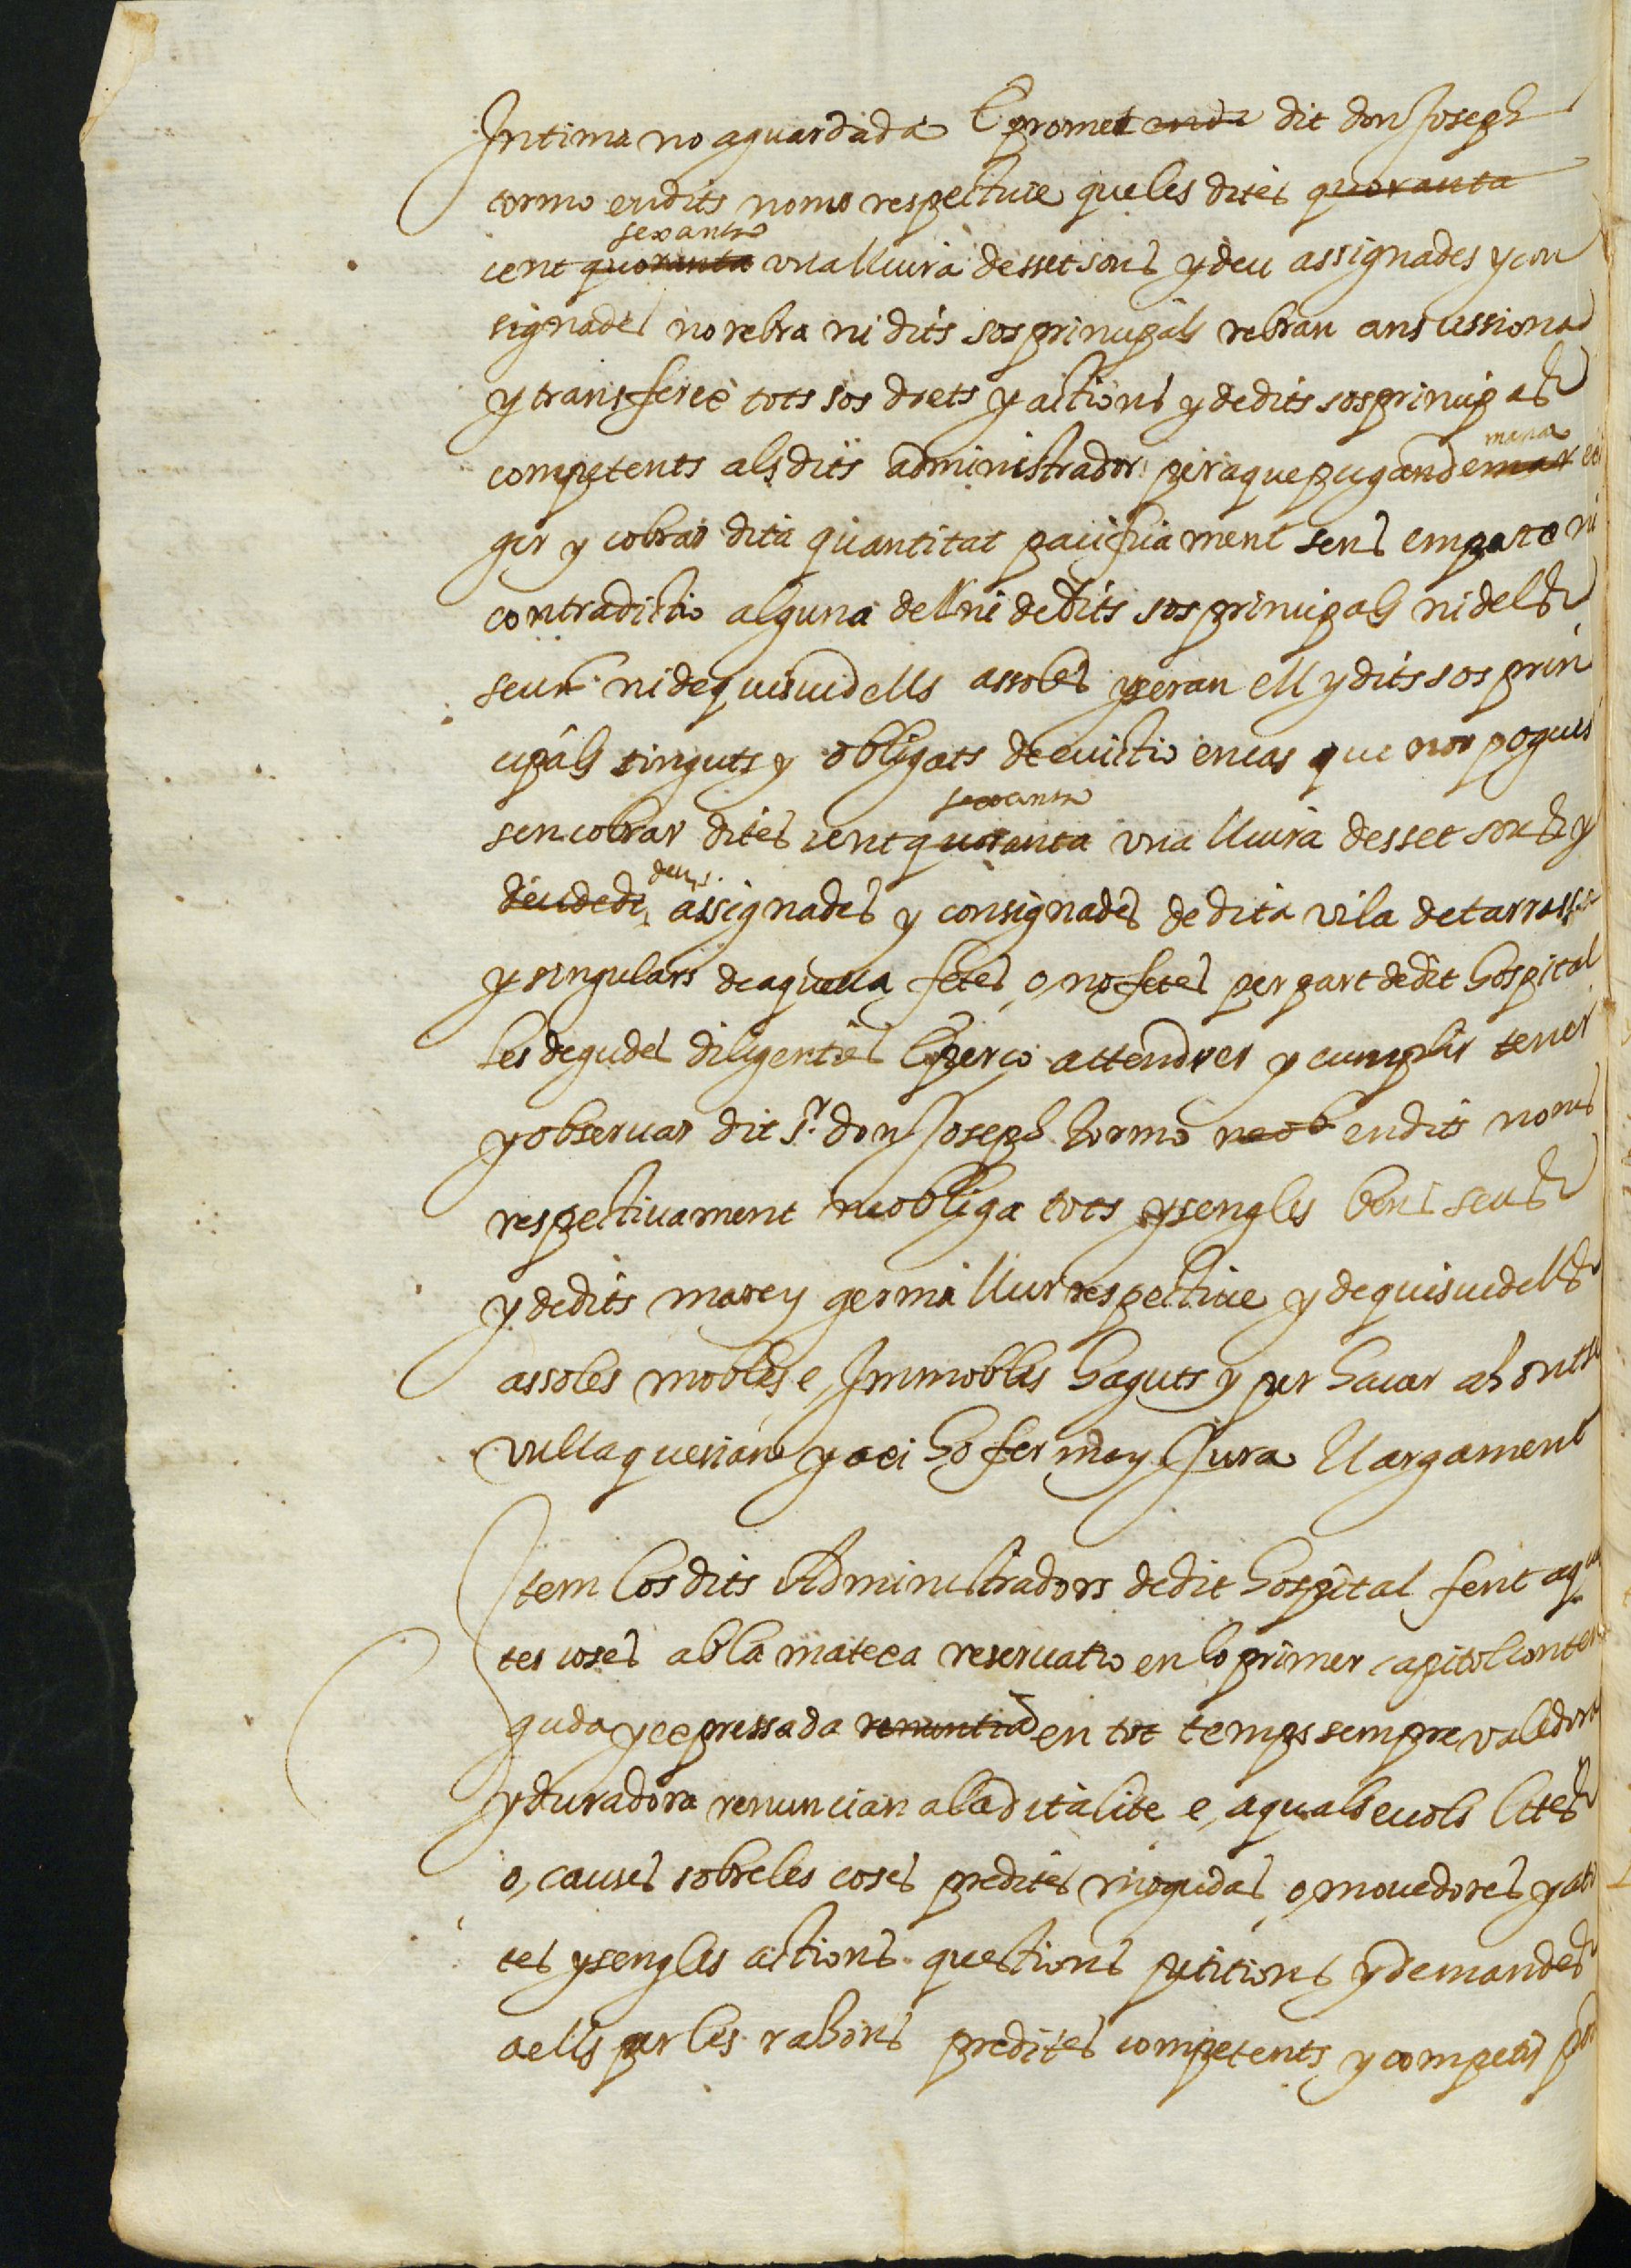 Intima no aguardada E promet enda dit don Joseph
tormo en dits noms respectiue que les dites quoranta
sexanta
cent quoranta vna lliura desset sous y deu assignades y con
signades no rebra ni dits sos principals rebran ans cessiona
y transfereè tots sos drets y actions y de dits sos principals
mana
competents als dits administradors peraque pugan demar exi
gir y cobrar dita quantitat pacificament sens empara ni
contradictio alguna dell ni de dits sos principals ni dels
seus ni de quisuidells assoles y seran ell y dits sos prin
cipals tinguts y obligats de euictio en cas que nos pogues
sexanta
sen cobrar dites cent quoranta vna lliura desset sous y
deu s.
deu de di assignades y consignades de dita vila de tarrassa
y singulars de aquella fetes o no fetes per part de dit hospital
les degudes diligenties E perço attendrer y cumplir tenir
y observar dit Sr. don Joseph tormo ne ob en dits noms
respectiuament ne obliga tots y sengles bens seus
y de dits mare y germa llur respectiue y de quisuidells
assoles mobles e Immobles haguts y per hauer ahont se
vulla que sian y axi ho ferma y Jura llargament
Item los dits Administradors de dit hospital fent aq
tes coses ab la matexa reseruatio en lo primer capitol conten
guda y expressada renuntia en tot temps sempre valedora
y duradora renuncian a la dita lite e a quals euols lites
o, causes sobre les coses predites mogudas o mouedores y a to
tes y sengles actions questions petitions y demandes
a ells per les rahons predites competents y competir po